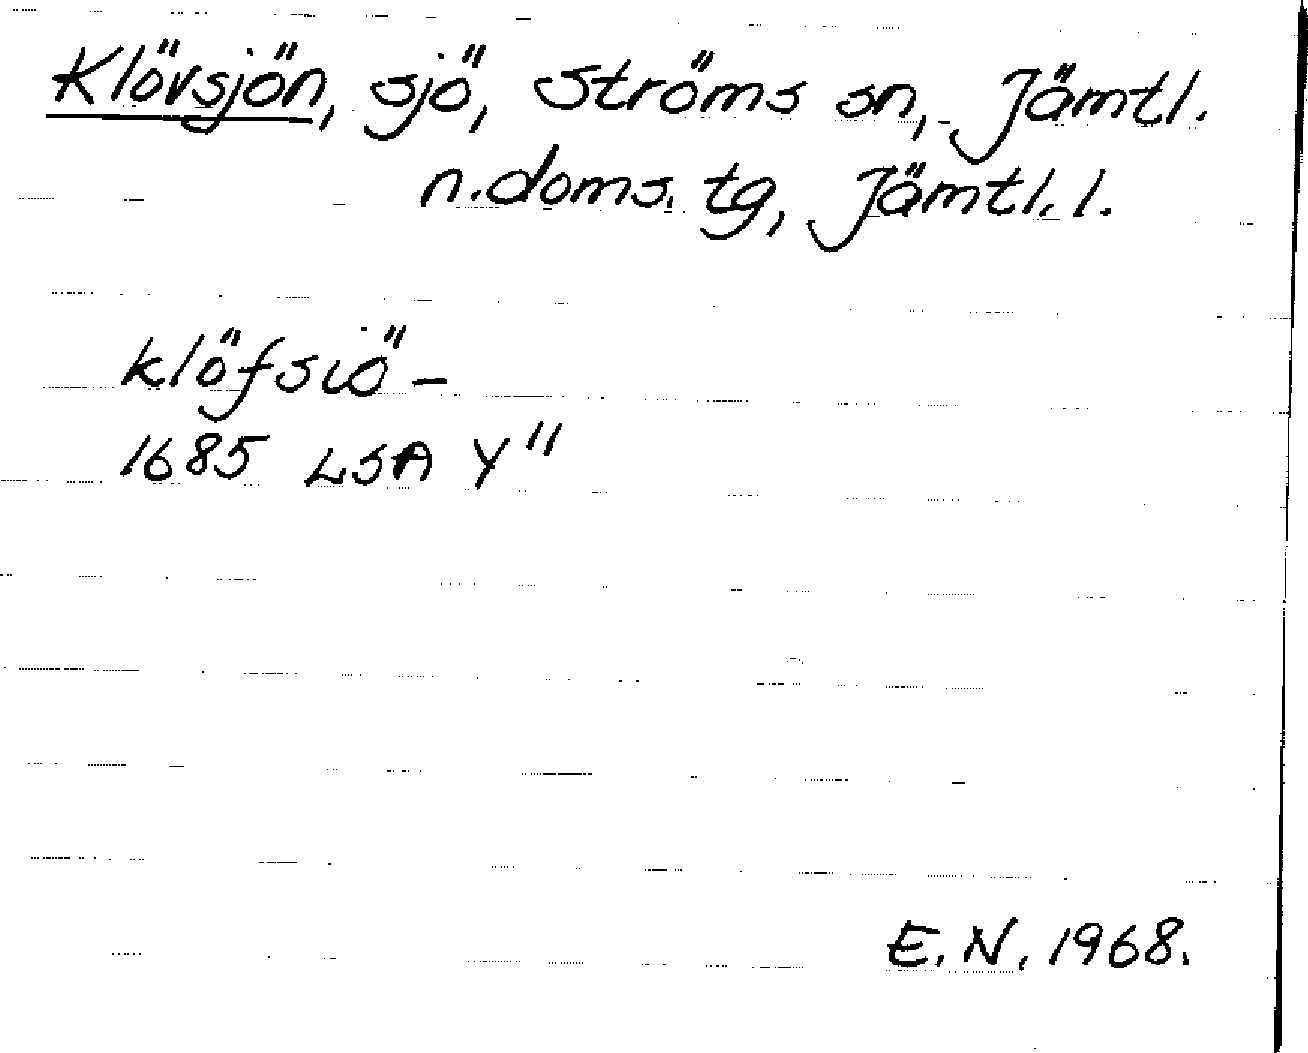 Klövsjön, sjö, Ströms sn, Jämtl.
n. doms. tg, Jämtl. l.
klöfsiö -
1685 LSA Y"
E. N. 1968.